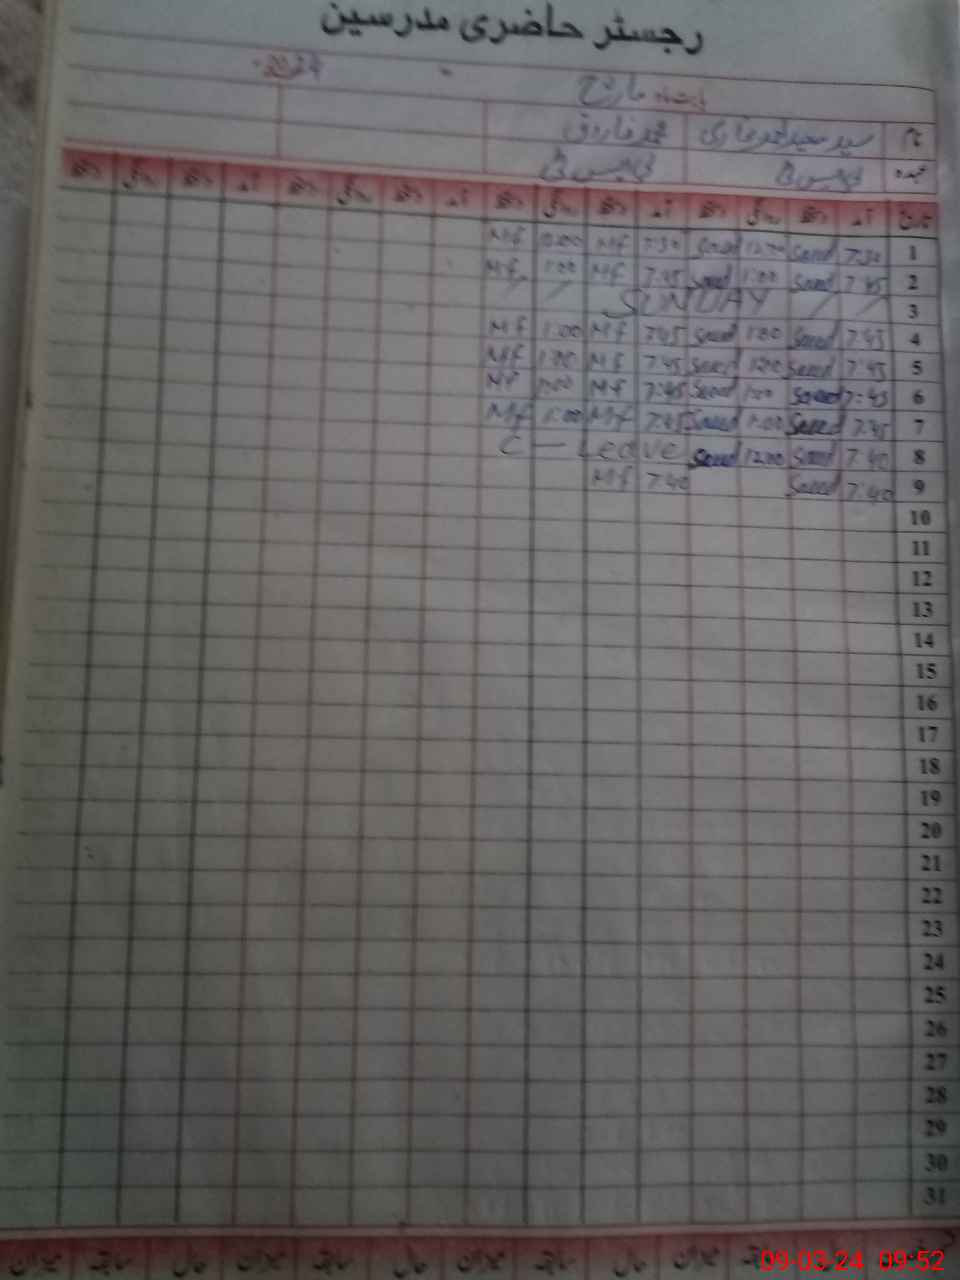 رجسٹر حاضری مدرسین
بابت ماہ مارچ 2024
نام سید سعید احمد محمد فاروق
عہدہ پی ایس ٹی پی ایس ٹی
تاریخ آمد دستخط روانگی دستخط آمد دستخط روانگی دستخط آمد دستخط روانگی دستخط آمد دستخط روانگی دستخط
1 7:30 Saeed Saeed 7:30 Mf Mf
2 7:45 Saeed 1:00 Saeed 7:45 Mf 1:00 Mf
3 SUNDAY
4 7:45 Saeed 1:00 Saeed 7:45 Mf 1:00 Mf
5 7:45 Saeed Saeed 7:45 Mf 1:00 Mf
6 7:45 Saeed Saeed 7:45 Mf 1:00 Mf
7 7:45 Saeed 1:00 Saeed 7:45 Mf 1:00 Mf
8 7:40 Saeed 12:00 Saeed C - Leave
9 7:40 Saeed 7:40 Mf
10
11
12
13
14
15
16
17
18
19
20
21
22
23
24
25
26
27
28
29
30
31
سابقہ میزان حال سابقہ میزان حال سابقہ میزان حال سابقہ میزان
09-03-24 09:52